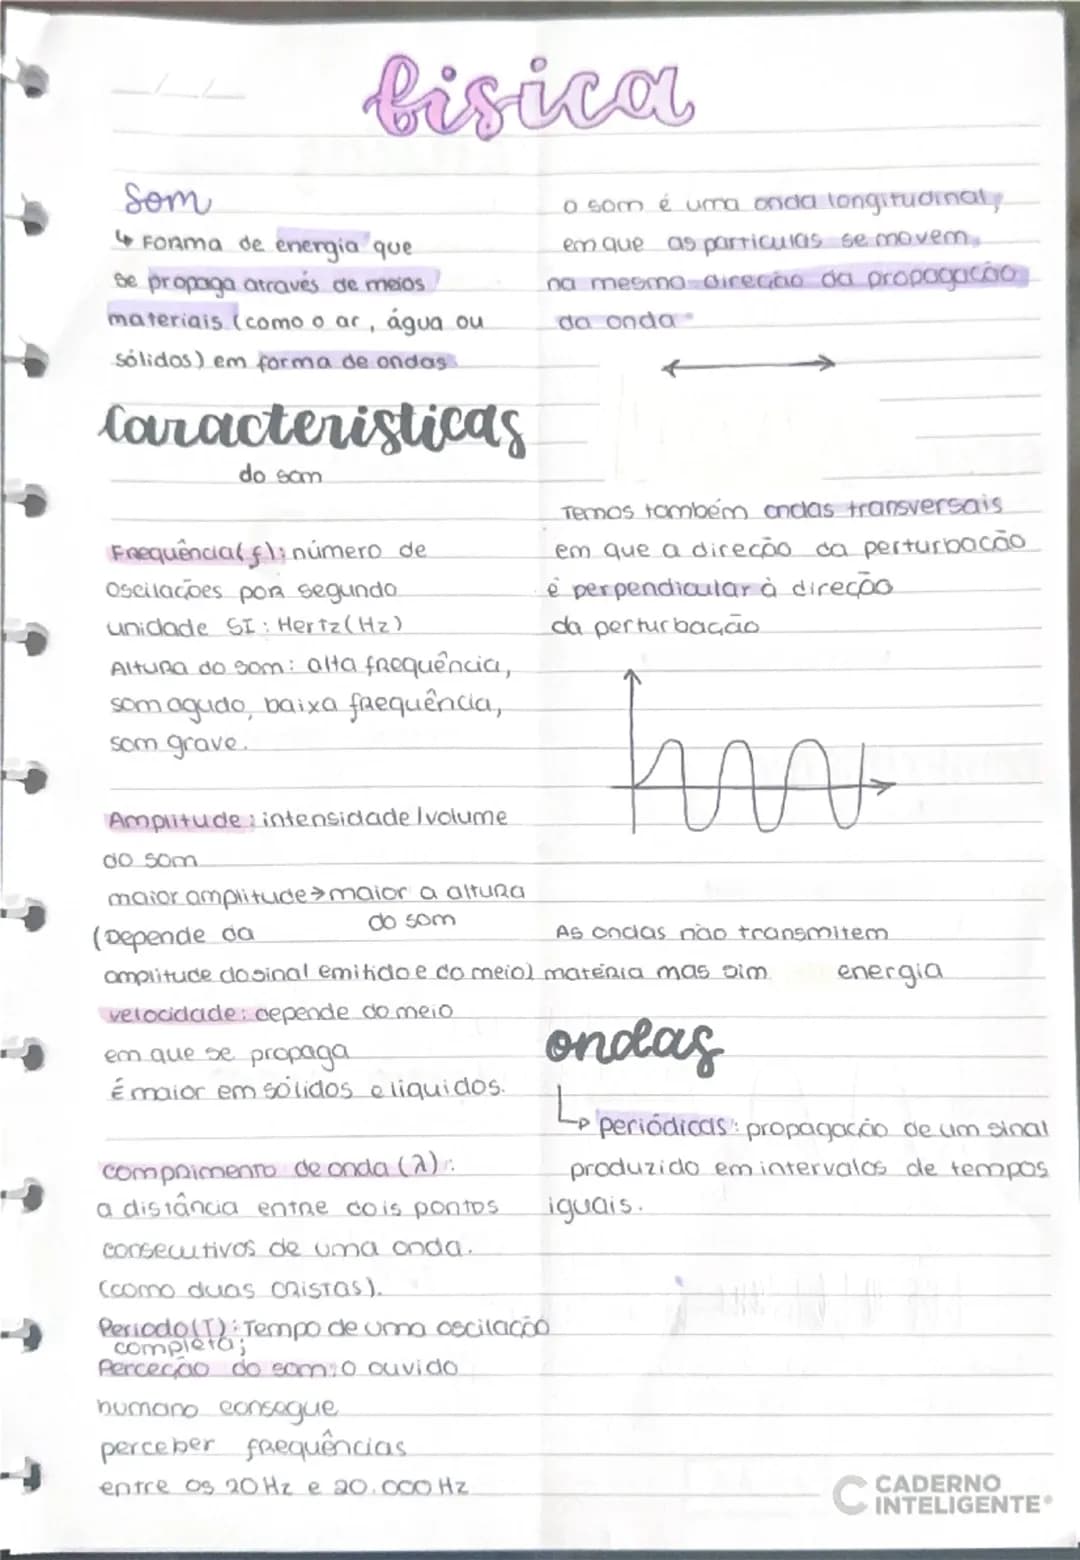 física
Som
↳ Forma de energia que
se propaga através de meios
materiais (como o ar, água ou
sólidos) em forma de ondas
Características
do som
Frequência(f): número de
oscilações por segundo
unidade SI: Hertz(Hz)
Altura do som: alta frequência,
som agudo, baixa frequência,
som grave.
Amplitude: intensidade/volume
do som
maior amplitude→maior a altura
do som
(Depende da
amplitude do sinal emitido e do meio)
velocidade: depende do meio
em que se propaga
É maior em sólidos e liquidos.
comprimento de onda (λ):
a distância entre dois pontos
consecutivos de uma onda.
(como duas cristas).
Periodo(T): Tempo de uma oscilação
completa;
Perceção do som: o ouvido
humano consegue
perceber frequências
entre os 20Hz e 20.000Hz
o som é uma onda longitudinal,
em que as particulas se movem
na mesma direção da propagação
da onda
Temos também ondas transversais
em que a direção da perturbação
é perpendicular à direção
da perturbação
As ondas não transmitem
matéria mas sim energia
ondas
↳ periódicas: propagação de um sinal
produzido em intervalos de tempos
iguais.
CADERNO
INTELIGENTE®